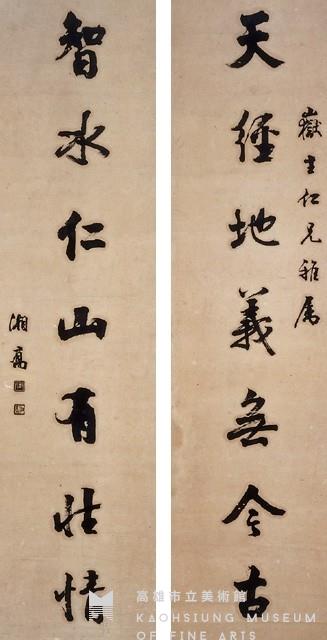 嶽生仁兄雅屬
天經地義無今古
智水仁山有性情
湘高
高雄市立美術館
KAOHSIUNG MUSEUM
OF FINE ARTS